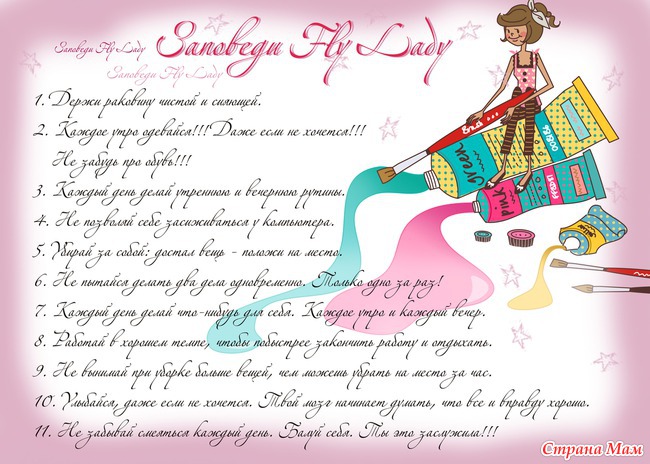 Заповеди Fly Lady Заповеди Fly Lady
Заповеди Fly Lady
1. Держи раковину чистой и сияющей.
2. Каждое утро одевайся!!! Даже если не хочется!!!
Не забудь про обувь!!!
3. Каждый день делай утреннюю и вечернюю рутины.
4. Не позволяй себе засиживаться у компьютера.
5. Убирай за собой: достал вещь - положи на место.
6. Не пытайся делать два дела одновременно. Только одно за раз!
7. Каждый день делай что-нибудь для себя. Каждое утро и каждый вечер.
8. Работай в хорошем темпе, чтобы побыстрее закончить работу и отдыхать.
9. Не вынимай при уборке больше вещей, чем можешь убрать на место за час.
10. Улыбайся, даже если не хочется. Твой мозг начинает думать, что все и вправду хорошо.
11. Не забывай смеяться каждый день. Балуй себя. Ты это заслужила!!!
green
pink
Страна Мам